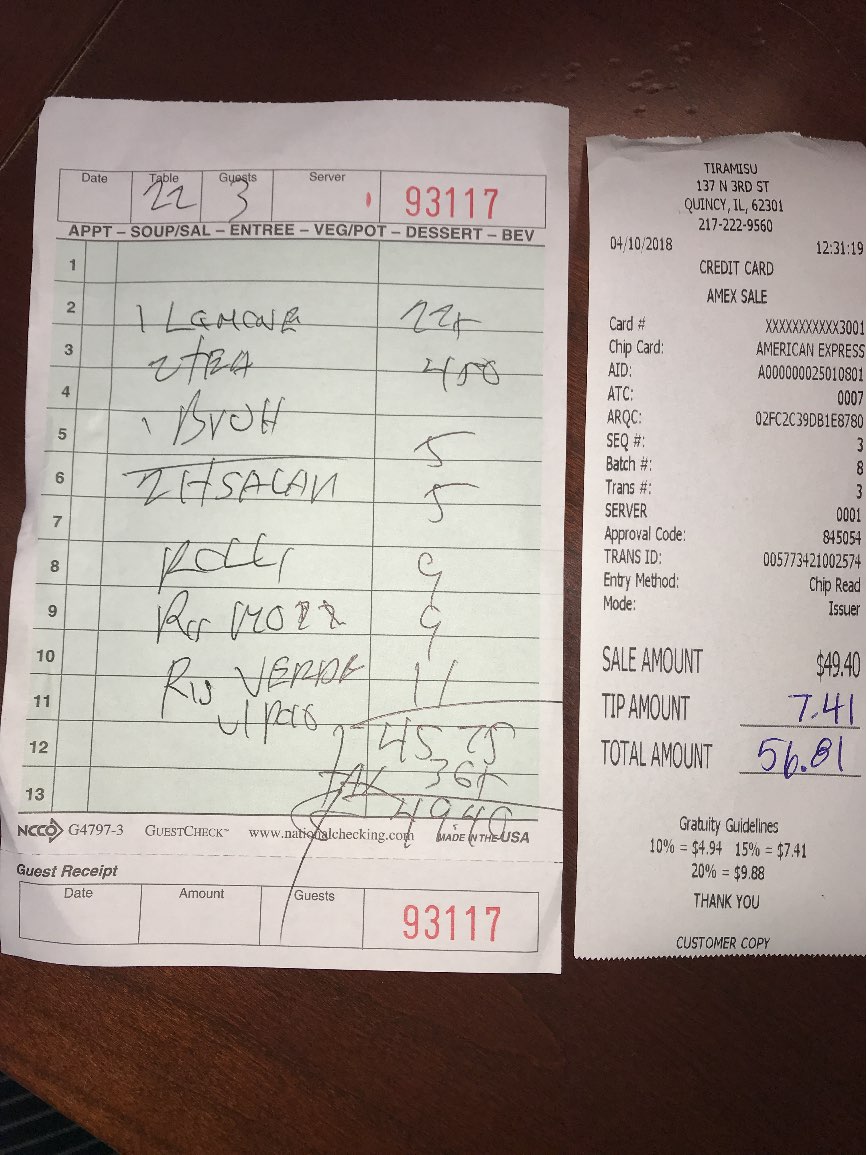 Date Table Guests Server
22 3 93117
APPT – SOUP/SAL – ENTREE – VEG/POT – DESSERT – BEV
1
2 1 225
3 2 TEA 450
4
5 5
6 2 5
7
8 9
9 MOZZ 9
10 VERDE 11
11
12 45 75
TAX 365
13 4940
NCCO G4797-3 GUESTCHECK™ www.nationalchecking.com MADE IN THE USA
Guest Receipt
Date Amount Guests
93117
TIRAMISU
137 N 3RD ST
QUINCY, IL, 62301
217-222-9560
04/10/2018 12:31:19
CREDIT CARD
AMEX SALE
Card # XXXXXXXXXXX3001
Chip Card: AMERICAN EXPRESS
AID: A000000025010801
ATC: 0007
ARQC: 02FC2C39DB1E8780
SEQ #: 3
Batch #: 8
Trans #: 3
SERVER 0001
Approval Code: 845054
TRANS ID: 005773421002574
Entry Method: Chip Read
Mode: Issuer
SALE AMOUNT $49.40
TIP AMOUNT 7.41
TOTAL AMOUNT 56.81
Gratuity Guidelines
10% = $4.94 15% = $7.41
20% = $9.88
THANK YOU
CUSTOMER COPY